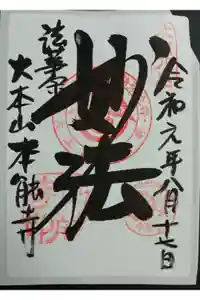 令和元年八月十七日
妙法
法華宗
大本山本能寺